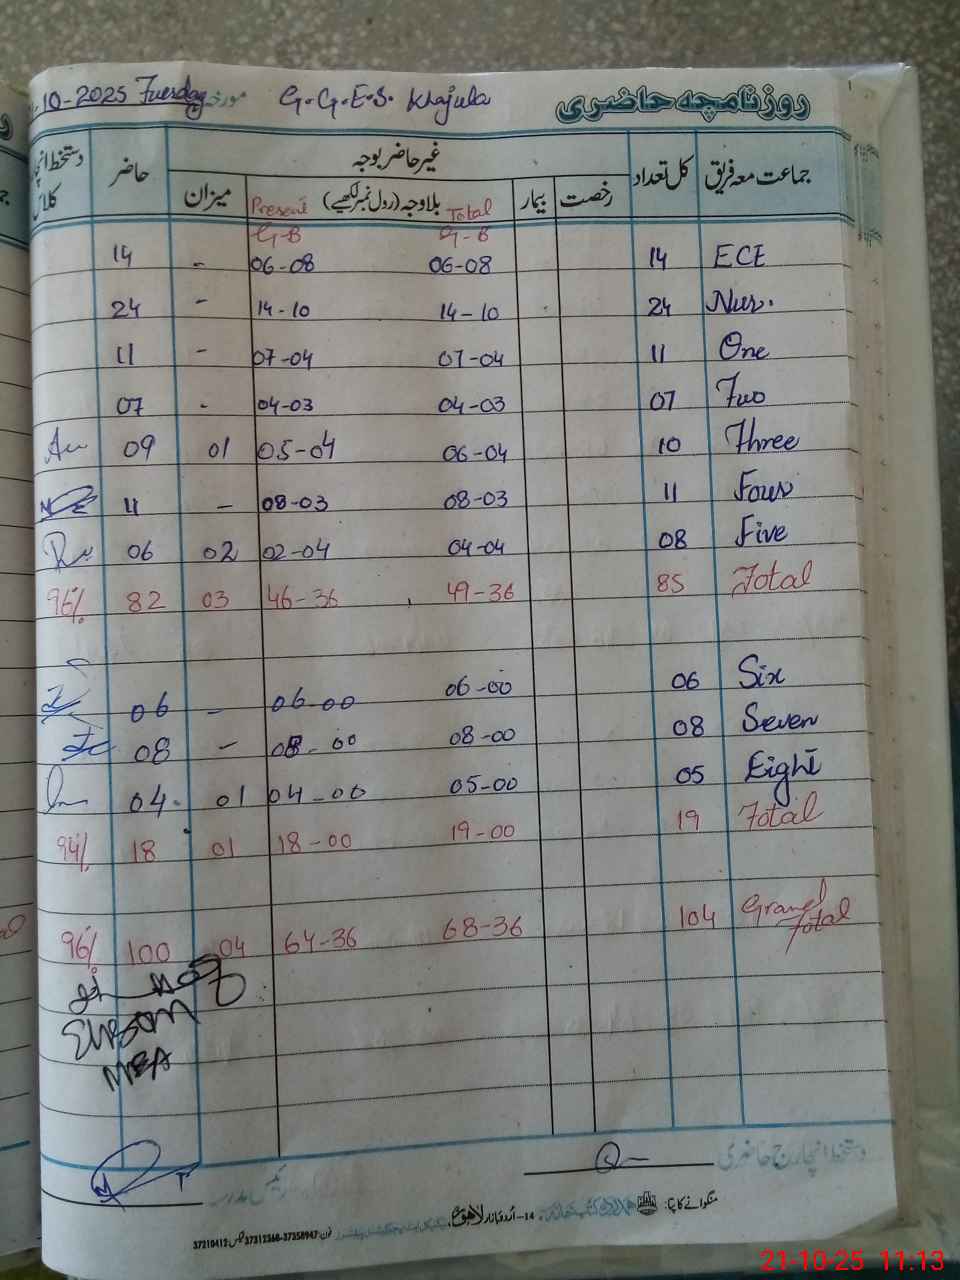 -10-2025 Tuesday مورخہ G.G.E.S. Khajula روزنامچہ حاضری
جماعت معہ فریق کل تعداد غیر حاضر بوجہ حاضر دستخط انچارج کلاس
رخصت بیمار بلاوجہ (رول نمبر لکھیے) Present Total میزان
G-B G-B
14 - 06-08 06-08 14 ECE
24 - 14-10 14-10 24 Nur.
11 - 07-04 07-04 11 One
07 - 04-03 04-03 07 Two
09 01 05-04 06-04 10 Three
11 - 08-03 08-03 11 Four
06 02 02-04 04-04 08 Five
96% 82 03 46-36 49-36 85 Total
06 - 06-00 06-00 06 Six
08 - 08-00 08-00 08 Seven
04 01 04-00 05-00 05 Eight
94% 18 01 18-00 19-00 19 Total
96% 100 04 64-36 68-36 104 Grand Total
MEA
دستخط انچارج حاضری
رئیس مدرسہ
منگوانے کا پتا: 14-اُردو بازار لاہور
فون: 37358947-37312360 فیکس 37210412
21-10-25 11:13